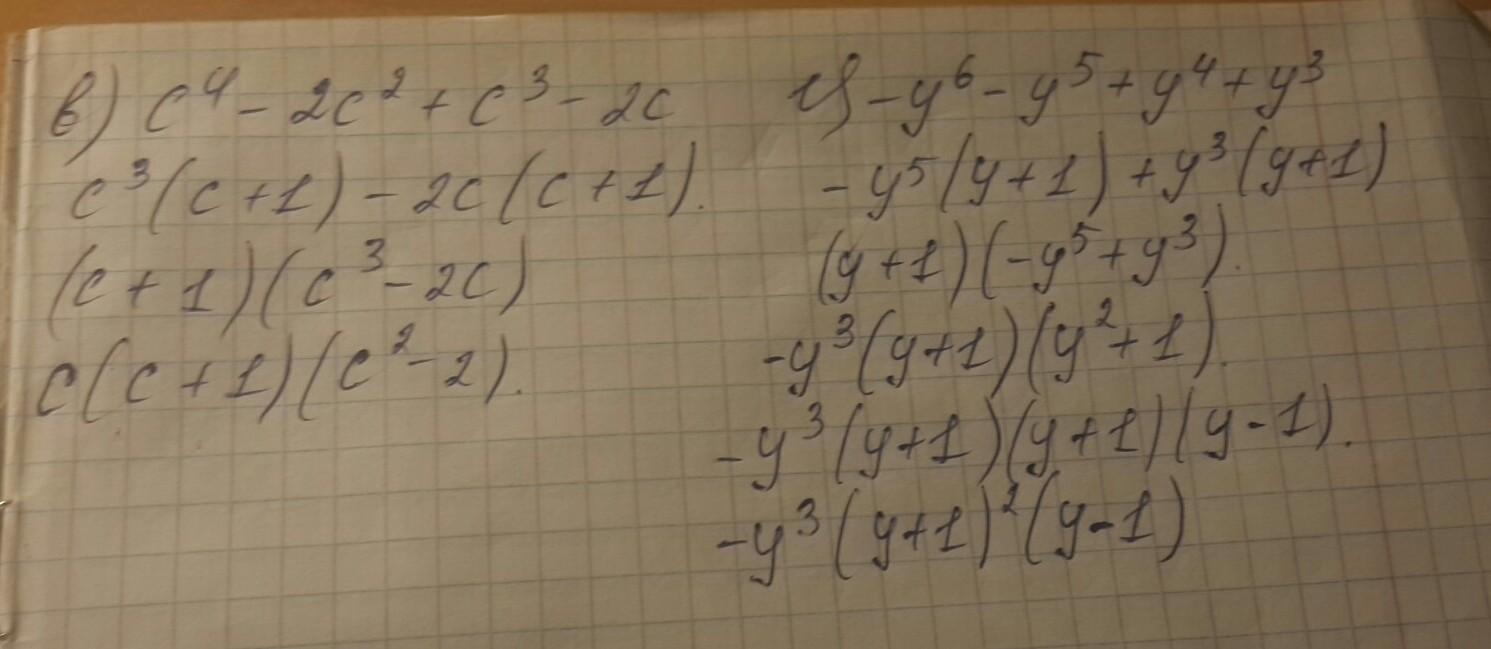 в) c⁴ - 2c² + c³ - 2c
c³(c+1) - 2c(c+1).
(c+1)(c³ - 2c)
c(c+1)(c² - 2).
г) -y⁶ - y⁵ + y⁴ + y³
-y⁵(y+1) + y³(y+1)
(y+1)(-y⁵ + y³).
-y³(y+1)(y²+1).
-y³(y+1)(y+1)(y-1).
-y³(y+1)²(y-1)